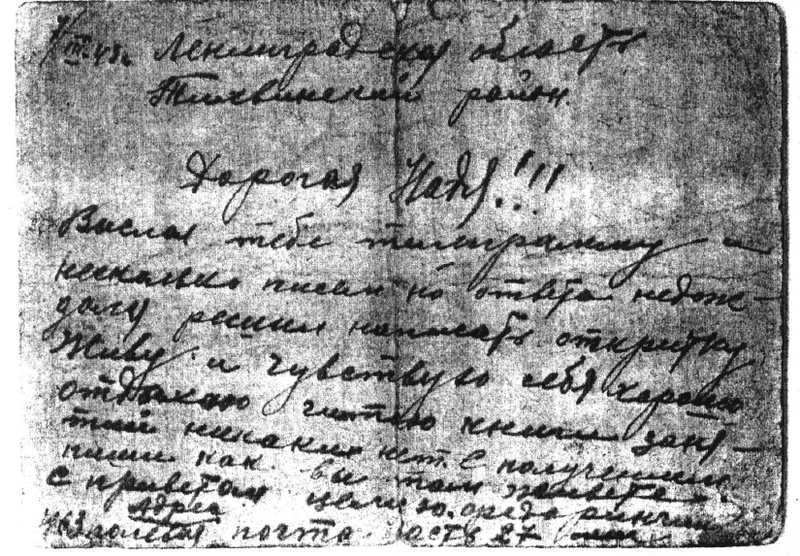 Ленинградская область
Тихвинский район.
Дорогая Надя!!!
Выслал тебе телеграмму и
несколько писем но ответа недож-
дался решил написать открытку
Живу и чувствую себя хорошо
отдыхаю читаю книги заня-
тий никаких нет. С получением
пиши как вы там живете.
С приветом целую.
Адрес
полевая почта часть 27